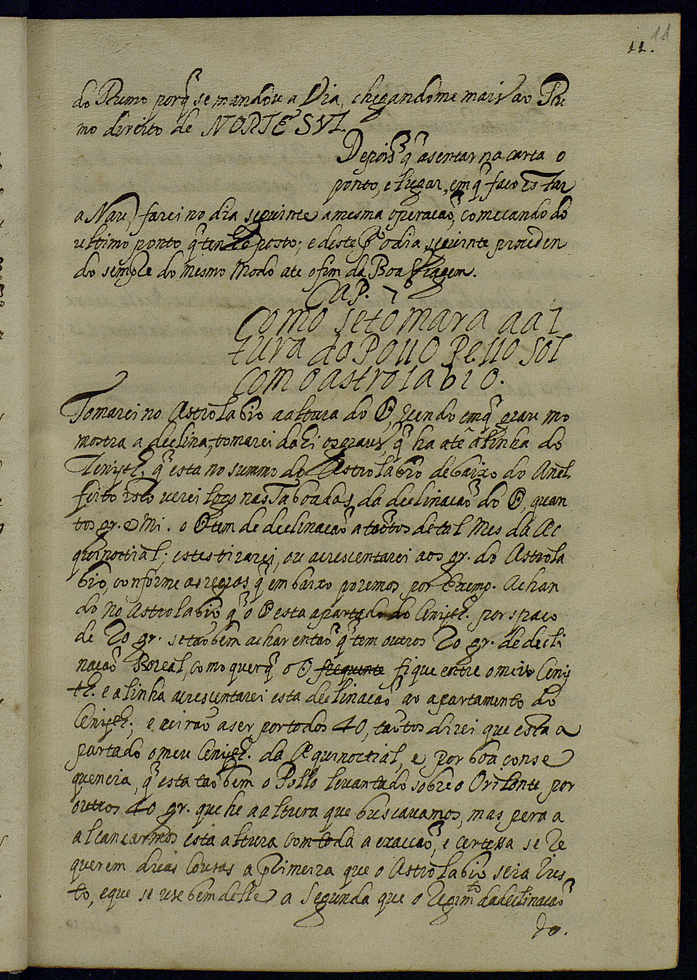 11.
11
do Rumo porq̃ se mandou a Via, chegandome mais ao Ru
mo direito de NORTE SVL
Depois q̃ asentar na carta o
ponto, e lugar, em q̃ faço estar
a Nau, farei no dia seguinte a mesma operacaõ, comecando do
ultimo ponto q̃ tenho posto; e deste p̃ o dia seguinte proceden
do sempre do mesmo modo ate o fim da Boa Viagem.
CaP. 7
Como se tomara a al
tura do Pollo Pello Sol
com o astrolabio.
Tomarei no Astrolabio a altura do ☉, vendo em q̃ grau mo
mostra a declina, tomarei dahi os graus q̃ ha até a linha do
Zenyth. q̃ esta no summo do Astrolabio debaixo do Anel.
feito isto verei logo nas Taboadas da declinacaõ do ☉, quan
tos gr. e Mi. o ☉ tem de declinacaõ a tantos de tal Mes da Ae
quinoctial; estes tirarei, ou acrescentarei aos gr. do Astrola
bio, conforme as regras q̃ em baixo poremos, por Exemp. Achan
do no Astrolabio q̃ o ☉ esta apartado do Cenyth. por spaço
de 20 gr. se taõbem achar entaõ q̃ tem outros 20 gr. de decli
nacaõ Boreal, como quer q̃ o ☉ fique entre o meu Ceny
th. e a linha acrescentarei esta declinacaõ ao apartamento do
Cenyth; e viraõ a ser por todos 40, tantos direi que esta a
partado o meu Cenyth. da Aequinoctial, e por boa conse
quencia, q̃ esta taõ bem o Pollo levantado sobre o Orizonte por
outros 40 gr. que he a altura que buscavamos, mas pera a
alcancarmos esta altura com toda a exaccaõ, e certeza se re
querem duas cousas a Primeira que o Astrolabio seia Jus
to, e que se use bem delle a Segunda que o Regimto da declinacaõ
do.